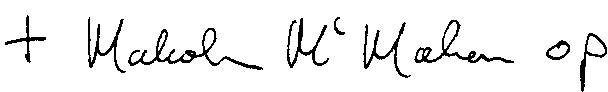 + Malcolm McMahon op